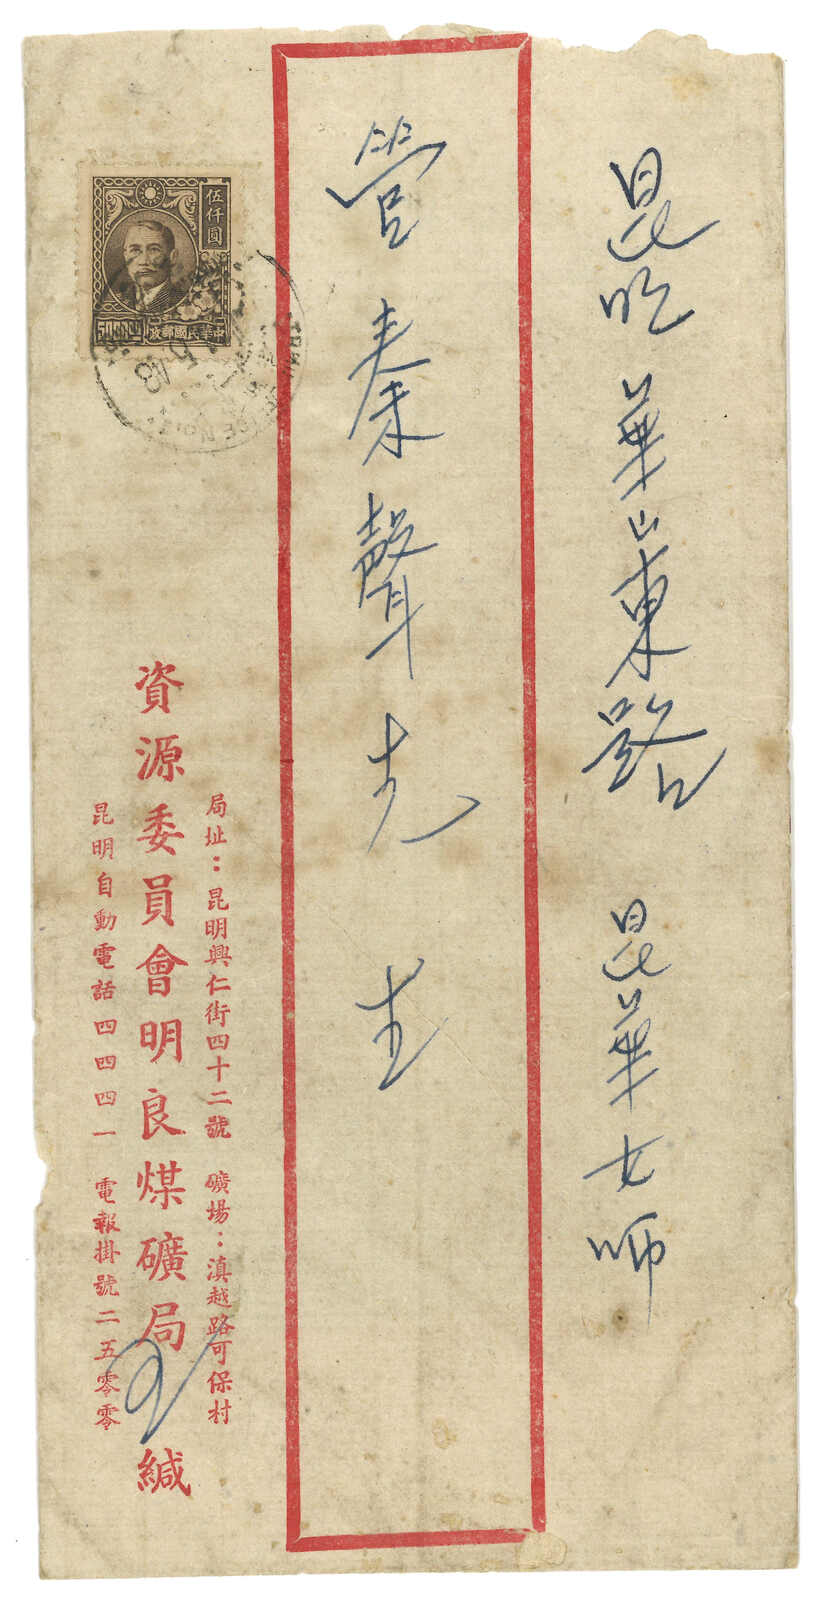 昆明華山東路口　昆華女師
管秦聲先生
伍仟圓
中華民國郵政
局址：昆明興仁街四十二號　礦場：滇越路可保村
資源委員會明良煤礦局　緘
昆明自動電話四四四一　電報掛號二五零零